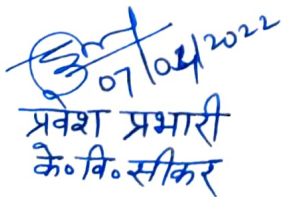 07/04/2022
प्रवेश प्रभारी
के॰ वि॰ सीकर